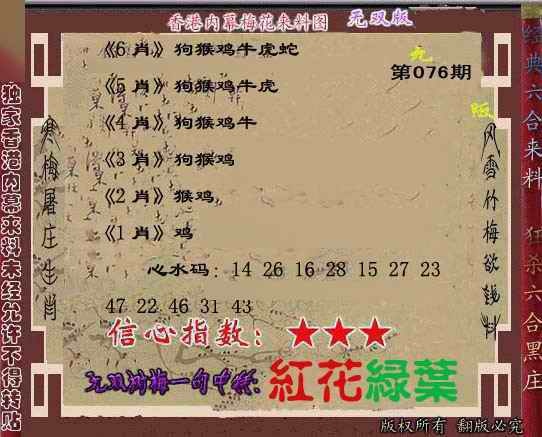 香港内幕梅花来料图 无双版
《6 肖》狗猴鸡牛虎蛇
《5 肖》狗猴鸡牛虎
《4 肖》狗猴鸡牛
《3 肖》狗猴鸡
《2 肖》猴鸡
《1 肖》鸡
第076期
心水码：14 26 16 28 15 27 23
47 22 46 31 43
信心指数：★★★
无双刘梅一句中特:紅花綠葉
版权所有 翻版必究
独家香港内幕来料未经允许不得转贴
寒梅屠庄生肖
风雪竹梅欲钱料
经典六合来料
狂杀六合黑庄
版